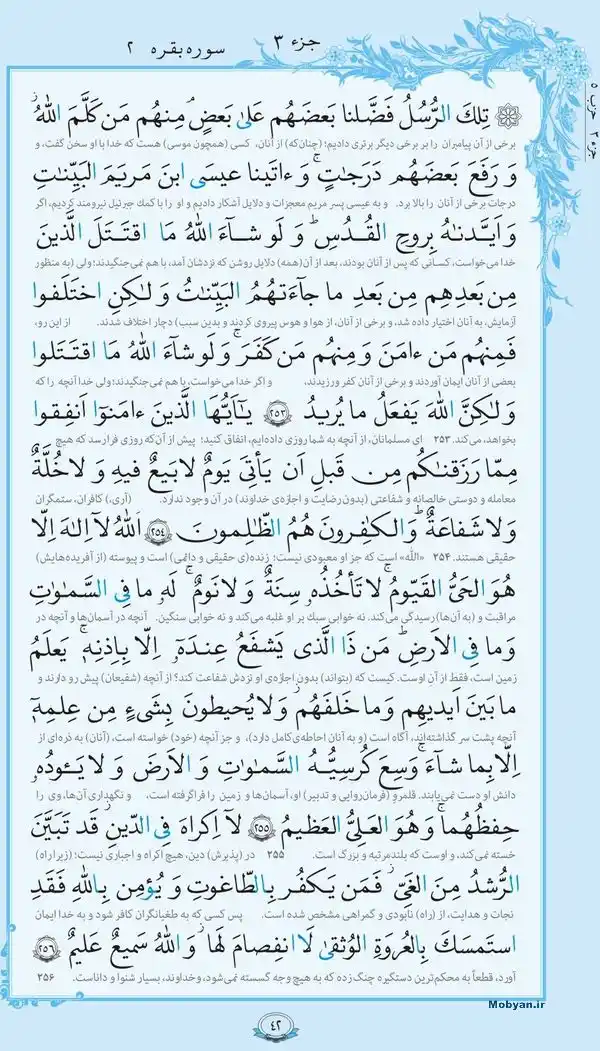 جزء ۳
سوره بقره ۲
حزب ۵
جزء ۳
تِلكَ الرُّسُلُ فَضَّلنا بَعضَهُم عَلىٰ بَعضٍ ۘ مِنهُم مَن كَلَّمَ اللّٰهُ ۖ
برخی از آن پیامبران را بر برخی دیگر برتری دادیم؛ (چنان‌که) از آنان، کسی (همچون موسی) هست که خدا با او سخن گفت، و
وَ رَفَعَ بَعضَهُم دَرَجٰتٍ ۚ وَ ءاتَينا عيسَى ابنَ مَريَمَ البَيِّنٰتِ
درجات برخی از آنان را بالا برد. و به عیسی پسر مریم معجزات و دلایل آشکار دادیم و او را با کمک جبرئیل نیرومند کردیم، اگر
وَ اَيَّدنٰهُ بِروحِ القُدُسِ ۗ وَ لَو شاۤءَ اللّٰهُ مَا اقتَتَلَ الَّذينَ
خدا می‌خواست، کسانی که پس از آنان بودند، بعد از آن (همه) دلایل روشن که نزدشان آمد، با هم نمی‌جنگیدند؛ ولی (به منظور
مِن بَعدِهِم مِن بَعدِ ما جاۤءَتهُمُ البَيِّنٰتُ وَ لٰكِنِ اختَلَفوا
آزمایش، به آنان اختیار داده شد، و برخی از آنان، از هوا و هوس پیروی کردند و بدین سبب) دچار اختلاف شدند. از این رو،
فَمِنهُم مَن ءامَنَ وَ مِنهُم مَن كَفَرَ ۚ وَ لَو شاۤءَ اللّٰهُ مَا اقتَتَلوا
بعضی از آنان ایمان آوردند و برخی از آنان کفر ورزیدند، و اگر خدا می‌خواست، با هم نمی‌جنگیدند؛ ولی خدا آنچه را که
وَ لٰكِنَّ اللّٰهَ يَفعَلُ ما يُريدُ ﴿۲۵۳﴾ يٰاَيُّهَا الَّذينَ ءامَنوا اَنفِقوا
بخواهد، می‌کند. ۲۵۳ ای مسلمانان، از آنچه به شما روزی داده‌ایم، انفاق کنید؛ پیش از آن‌که روزی فرارسد که هیچ
مِمّا رَزَقنٰكُم مِن قَبلِ اَن يَأتِىَ يَومٌ لا بَيعٌ فيهِ وَ لا خُلَّةٌ
معامله و دوستی خالصانه و شفاعتی (بدون رضایت و اجازه‌ی خداوند) در آن وجود ندارد. (آری،) کافران، ستمگران
وَ لا شَفاعَةٌ ۗ وَ الكٰفِرونَ هُمُ الظّٰلِمونَ ﴿۲۵۴﴾ اَللّٰهُ لاۤ اِلٰهَ اِلّا
حقیقی هستند. ۲۵۴ «الله» است که جز او معبودی نیست؛ زنده‌(ی حقیقی و دائمی) است و پیوسته (از آفریده‌هایش)
هُوَ الحَىُّ القَيّومُ ۚ لا تَأخُذُهُ سِنَةٌ وَ لا نَومٌ ۚ لَهُ ما فِى السَّمٰوٰتِ
مراقبت و (به آن‌ها) رسیدگی می‌کند. نه خوابی سبک بر او غلبه می‌کند و نه خوابی سنگین. آنچه در آسمان‌ها و آنچه در
وَ ما فِى الاَرضِ ۗ مَن ذَا الَّذى يَشفَعُ عِندَهُ اِلّا بِاِذنِهِ ۚ يَعلَمُ
زمین است، فقط از آنِ اوست. کیست که (بتواند) بدون اجازه‌ی او نزدش شفاعت کند؟ از آنچه (شفیعان) پیش رو دارند و
ما بَينَ اَيديهِم وَ ما خَلفَهُم ۖ وَ لا يُحيطونَ بِشَىءٍ مِن عِلمِهِ
آنچه پشت سر گذاشته‌اند، آگاه است (و به آنان احاطه‌ی کامل دارد)، و جز آنچه (خود) خواسته است، (آنان) به ذره‌ای از
اِلّا بِما شاۤءَ ۚ وَسِعَ كُرسِيُّهُ السَّمٰوٰتِ وَ الاَرضَ ۖ وَ لا يَئودُهُ
دانش او دست نمی‌یابند. قلمرو (فرمان‌روایی و تدبیر) او، آسمان‌ها و زمین را فراگرفته است، و نگهداری آن‌ها، وی را
حِفظُهُما ۚ وَ هُوَ العَلِىُّ العَظيمُ ﴿۲۵۵﴾ لاۤ اِكراهَ فِى الدّينِ ۖ قَد تَبَيَّنَ
خسته نمی‌کند، و اوست که بلندمرتبه و بزرگ است. ۲۵۵ در (پذیرش) دین، هیچ اکراه و اجباری نیست؛ (زیرا راه)
الرُّشدُ مِنَ الغَىِّ ۚ فَمَن يَكفُر بِالطّاغوتِ وَ يُؤمِن بِاللّٰهِ فَقَدِ
نجات و هدایت، از (راه) نابودی و گمراهی مشخص شده است. پس کسی که به طغیانگران کافر شود و به خدا ایمان
استَمسَكَ بِالعُروَةِ الوُثقىٰ لَا انفِصامَ لَها ۗ وَ اللّٰهُ سَميعٌ عَليمٌ ﴿۲۵۶﴾
آورد، قطعاً به محکم‌ترین دستگیره چنگ زده که به هیچ وجه گسسته نمی‌شود، و خداوند، بسیار شنوا و داناست. ۲۵۶
Mobyan.ir
۴۲